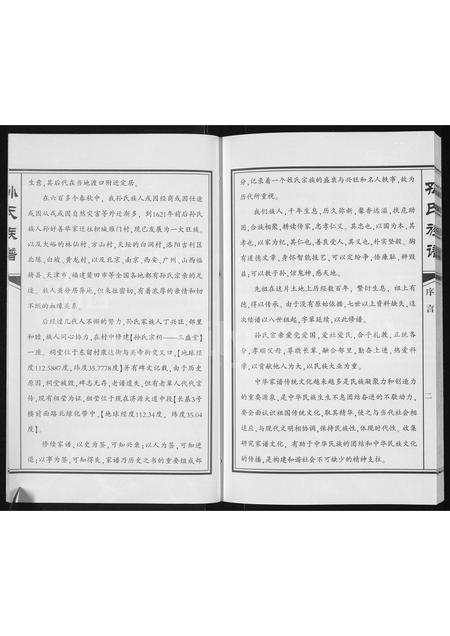 生意,其后代在当地渡口附近定居。
在六百多个春秋中,我孙氏族人或因经商或因仕途
或因从戎或因自然灾害等外迁渐多,到1621年前后孙氏
族人孙好善举家迁往轵城雁门村,现已发展为一大旺族。
以及大峪的林仙村、方山村、天坛的白涧村、洛阳吉利区
北陈、白坡、黄龙村,以及北京、南京、西安、广州、山西临
猗县、天津市、福建莆田市等全国各地都有孙氏宗亲的足
迹。族人虽分居异地,但来往密切,有着浓厚的亲情和切
不断的血缘关系。
后经过几代人不懈的努力,孙氏家族人丁兴旺,邻里
和睦,族人同心协力,在村中修建【孙氏宗祠——三盛堂】
一座。祠堂位于东留村康达街与关帝街交叉口,【地球经
度112.5887度,纬度35.7778度】并有碑文记载,由于历史
原因,祠堂被毁,碑志无存,老谱遗失,但有老辈人代代言
传,现有祖茔为证,祖茔位于现在济源大道中段【长基3号
楼前西路北绿化带中,【地球经度112.34度,纬度35.04
度】。
修续家谱,以史为鉴,可知兴衰;以人为鉴,可知进
退;以事为鉴,可知得失,家谱乃历史之书的重要组成部
分,记录着一个姓氏宗族的盛衰与兴旺和名人轶事,故为
历代所重视。
我们族人,千年生息,历久弥新,馨香远溢,扶危劝
困,合族相聚,耕读传家,忠孝仁义。其忠也,以国为本,其
孝也,以家为纪,其仁也,善良受人,其义也,朴实坚毅。胸
有道德文章,身怀智能技艺,可以定纷争,倍廉耻,辨毁
誉;可以教子孙,惊鬼神,感天地。
先祖在这片土地上历经数百年,繁衍生息,祖上有
德,得以传承。由于没有原始依据,七世以上资料缺失,这
次续谱以八世祖起,字辈延续,以此修谱。
孙氏宗亲爱党爱国,爱社爱民,合乎礼教,正统各
分,孝顺父母,尊敬长辈,融合邻里,勤奋上进,热爱科
学,以贡献他人为大,以民族大业为重。
中华家谱传统文化越来越多是民族凝聚力和创造力
的重要源泉,是中华民族生生不息团结奋进的不歇动力,
要全面认识祖国传统文化,取其精华,使之与当代社会相
适应,与现代文明相协调,保持民族性,体现时代性。收集
研究家谱文化,有助于中华民族的团结和中华民族文化
的传播,是构建和谐社会不可缺少的精神支柱。
孙氏族谱
孙氏族谱
序言
二